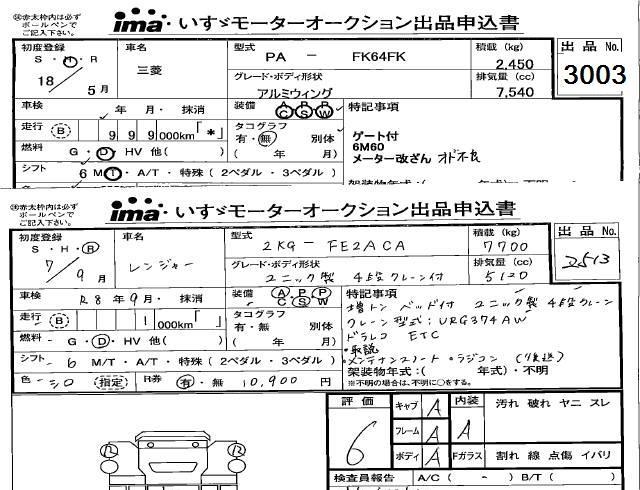 ※赤太枠内は必ず
ボールペンで
ご記入下さい。
ima いすゞモーターオークション出品申込書
初度登録 車名 型式 積載 (kg) 出品 No.
S・H・R 三菱 PA － FK64FK 2,450 3003
18 5月 グレード・ボディ形状 排気量 (cc)
アルミウィング 7,540
車検 年 月・ 抹消 装備 A P P 特記事項
C S W
走行 B 9 9 9 000km「*」 タコグラフ ゲート付
有・無 別体 6M60
燃料 G・D・HV 他( ) ( 年 月) メーター改ざん オド不良
シフト 6 MT・A/T・特殊 (2ペダル・3ペダル)
架装物年式:( 年式)・不明
※赤太枠内は必ず
ボールペンで
ご記入下さい。
ima いすゞモーターオークション出品申込書
初度登録 車名 型式 積載 (kg) 出品 No.
S・H・R レンジャー 2KG － FE2ACA 7700 2513
7 9月 グレード・ボディ形状 排気量 (cc)
ユニック製 4段クレーン付 5120
車検 R8年9月・ 抹消 装備 A P P 特記事項
C S W
増トン ベッド付 ユニック製 4段クレーン
走行 B 1 000km「 」 タコグラフ クレーン型式:URG374AW
有・無 別体 ドラレコ ETC
燃料 G・D・HV 他( ) ( 年 月) ・取説
シフト 6 M/T・A/T・特殊 (2ペダル・3ペダル) ・メンテナンスノート ・ラジコン (後送)
架装物年式:( 年式)・不明
色 シロ (指定) R券 有・無 10,900 円 ※不明の場合は、不明に○をする。
評価 キャブ A 内装 汚れ 破れ ヤニ スレ
6 フレーム A A
ボディ A Fガラス 割れ 線 点傷 イバリ
12 12
検査員報告 A/C ( - ) B/T ( )